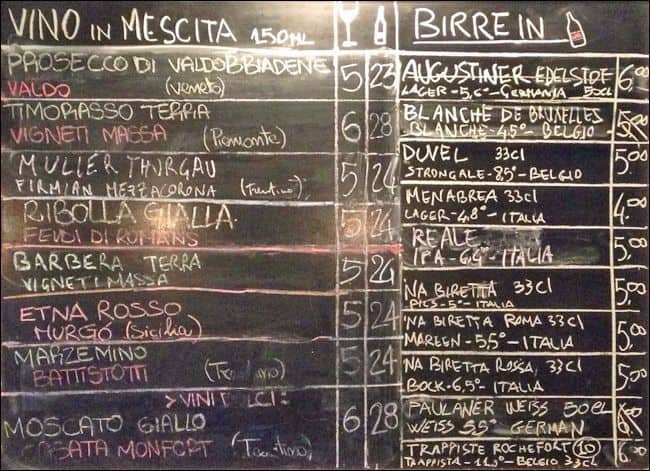 VINO IN MESCITA 150ML
PROSECCO DI VALDOBBIADENE 5 23
VALDO (Veneto)
TIMORASSO TERRA 6 28
VIGNETI MASSA (Piemonte)
MULLER THURGAU 5 24
FIRMIAN MEZZACORONA (Trentino)
RIBOLLA GIALLA 5 24
FEUDI DI ROMANS
BARBERA TERRA 5 24
VIGNETI MASSA
ETNA ROSSO 5 24
MURGÓ (Sicilia)
MARZEMINO 5 24
BATTISTOTTI (Trentino)
> VINI DOLCI:
MOSCATO GIALLO 6 28
CASATA MONFORT (Trentino)
BIRRE IN
AUGUSTINER EDELSTOF 6,00
LAGER - 5,6° - GERMANIA 50CL
BLANCHE DE BRUXELLES 5,00
BLANCHE - 4,5° - BELGIO
DUVEL 33cl 5,00
STRONGALE - 8,5° - BELGIO
MENABREA 33cl 4,00
LAGER - 4,8° - ITALIA
REALE 5,00
IPA - 6,4° - ITALIA
NA BIRETTA 33cl 5,00
PILS - 5° - ITALIA
'NA BIRETTA ROMA 33cl 5,00
MARLEN - 5,5° - ITALIA
NA BIRETTA ROSSA, 33cl 5,00
BOCK - 6,5° - ITALIA
PAULANER WEISS 50CL
WEISS 5,5° GERMAN
TRAPPISTE ROCHEFORT (10) 6,00
TRAPPISTA - 11,3° - BELGIO 33cl